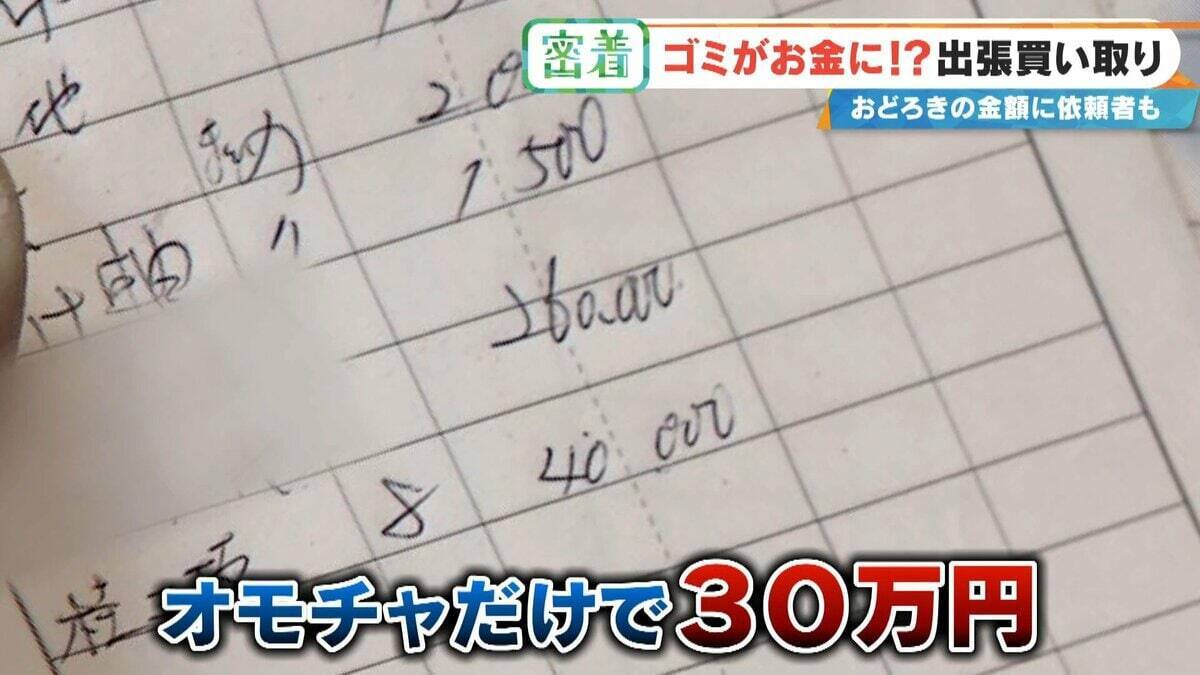 密着
ゴミがお金に!?出張買い取り
おどろきの金額に依頼者も
他
1 500
〃
260.000
8
40 000
オモチャだけで30万円